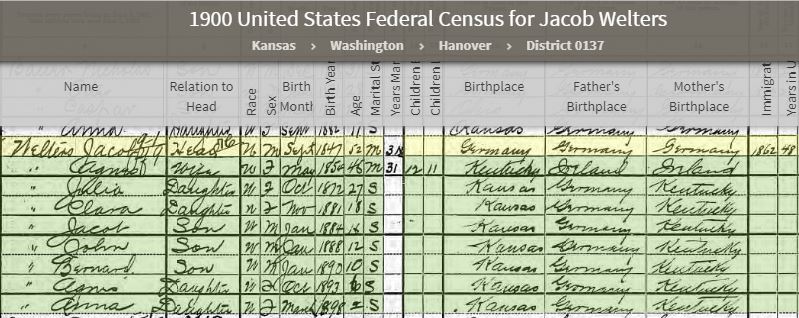 1900 United States Federal Census for Jacob Welters
Kansas › Washington › Hanover › District 0137
Name Relation to Head Race Sex Birth Month Birth Year Age Marital St Years Mar Children B Children L Birthplace Father's Birthplace Mother's Birthplace Immigrat Years in U
" Anna Daughter W F Sept 1882 17 S Kansas Germany Germany
Welters Jacob Head W M Sept 1847 52 M 31 Germany Germany Germany 1852 48
" Agnes Wife W F May 1854 46 M 31 12 11 Kentucky Ireland Ireland
" Julia Daughter W F Oct 1872 27 S Kansas Germany Kentucky
" Clara Daughter W F Nov 1881 18 S Kansas Germany Kentucky
" Jacob Son W M Jan 1884 16 S Kansas Germany Kentucky
" John Son W M Jan 1888 12 S Kansas Germany Kentucky
" Bernard Son W M Jan 1890 10 S Kansas Germany Kentucky
" Agnes Daughter W F Oct 1893 6 S Kansas Germany Kentucky
" Anna Daughter W F March 1898 2 S Kansas Germany Kentucky